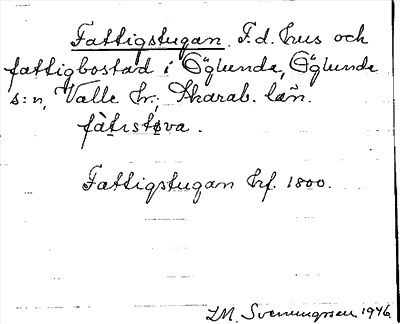 Fattigstugan. F.d. hus och
fattigbostad i Öglunda, Öglunda
s:n, Valle hr., Skarab. län.
fàtıstəva.
Fattigstugan hrf. 1800.
I.M. Svenungsson 1946